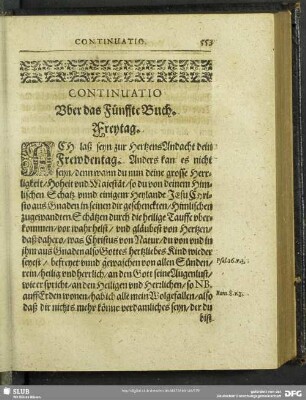 CONTINUATIO. 553
CONTINUATIO
Vber das Fünffte Buch.
Freytag.
ACH laß seyn zur Hertzens Andacht dein
Frewdentag. Anders kan es nicht
seyn/ denn wann du nun deine grosse Herr-
ligkeit/ Hoheit vnd Majestät/ so du von deinem Him-
lischen Schatz vnnd einigem Heylande JEsu Chri-
sto aus Gnaden in seinen dir geschenckten/ Himlischen
zugewandten Schätzen durch die heilige Tauffe vber-
kommen/ vor wahr helst/ vnd gläubest von Hertzen/
daß dahero/ was Christus von Natur/ du von vnd in
ihm aus Gnaden also Gottes hertzliebes Kind wieder
seyest/ befreyet vnnd gewaschen von allen Sünden/
rein/ heilig vnd herrlich/ an den Gott seine Augenlust/
wie er spricht/ an den Heiligen vnd Herrlichen/ so NB.
auff Erden wonen/ hab ich alle mein Wolgefallen/ also
daß dir nichts mehr könne verdamliches seyn/ der du
bist
Psal.16.v.3.
Rom.8.v.1.
SLUB
DFG